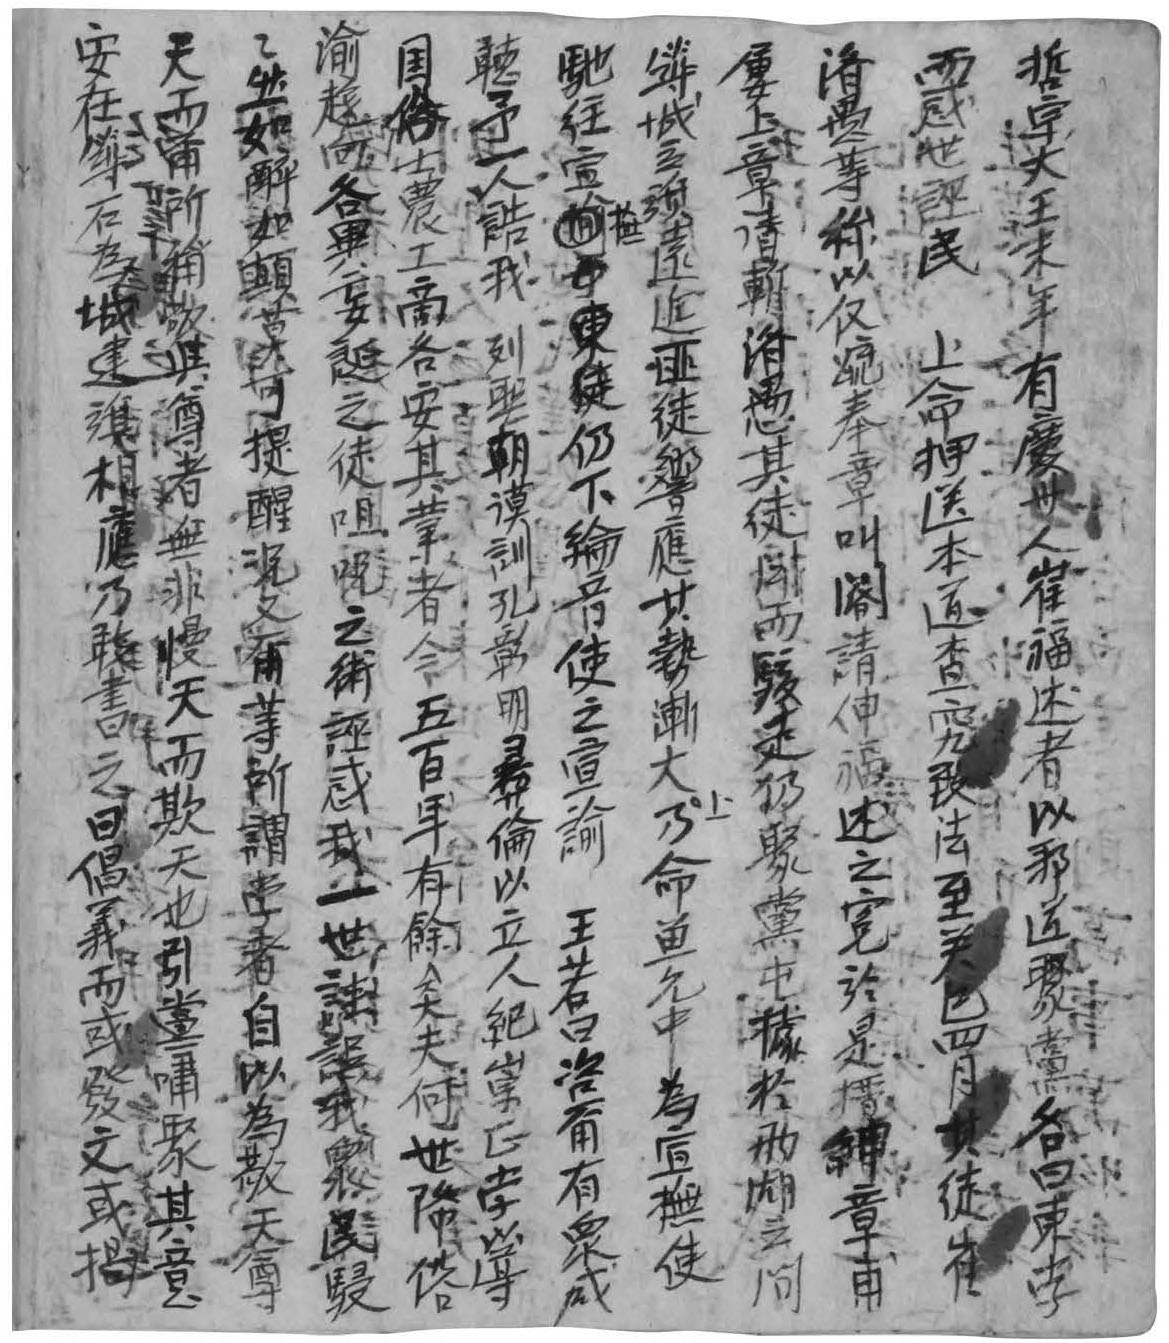 哲宗大王末年有慶世人崔福述者以邪道聚黨名曰東学
而惑世誣民 上命押送本道查究致法至癸巳四月其徒崔
濟愚等称以伏疏奉章叫閤請伸福述之寃於是搢紳章甫
屢上章請斬濟愚其徒聞而駭走仍聚黨屯據於湖之間
築城立旗遠近匪徒響應其勢漸大乃上命魚允中為宣撫使
馳往宣撫東徒仍下綸音使之宣諭 王若曰咨爾有衆咸
聽予一人誥我 列聖朝謨訓孔彰明彝倫以立人紀崇正学以導
国俗士農工商各安其業者今五百年有餘矣夫何世降俗
渝趍向各異妄誕之徒咀呪之術誣惑我一世註誤我衆民駸
〻然如醉如顛莫可提醒況又爾等所謂学者自以為敬天尊
天而爾所稱敬與尊者無非慢天而欺天也引黨嘯聚其意
安在築石為城建旗相應乃敢書之曰倡義而或發文或揭